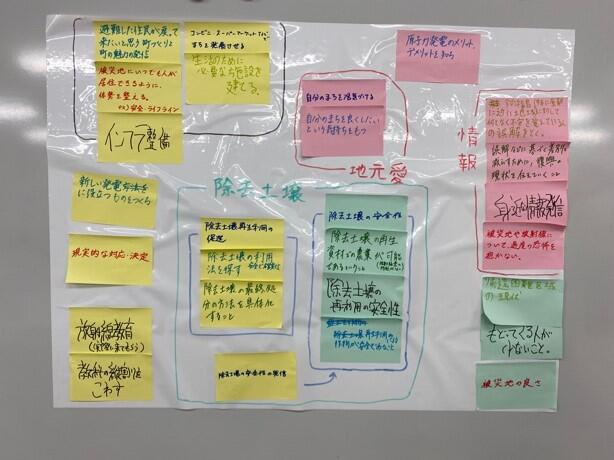 避難した住民が戻って
来たいと思う町づくりと
町の魅力の発信
被災地にいつでも人が
居住できるように、
体制を整える。
ex)安全・ライフライン
インフラ整備
コンビニ・スーパーマーケットなど、
まちを発展させる
生活のために
必要な施設を
建てる。
原子力発電のメリット、
デメリットを知る
自分のまちを
自分のまちを良くしたい
という気持ちをもつ
地元愛
情報
の誤解をとく。
現状を伝えていくこと
身近な情報発信
被災地や放射線に
ついて、過度の恐怖を
抱かない。
除去土壌
新しい発電方法など
に役立つものをつくる
現実的な対応・決定
放射線教育
教科の縦割りを
こわす
除去土壌再生利用の
促進
除去土壌の利用
法を探す
除去土壌の最終処
分の方法を具体化
すること
除去土壌の安全性の発信
除去土壌の安全性
除去土壌の再生
資材での農業が可能
であるということ
除去土壌の
再利用の安全性
除去土壌再生利用
帰還困難区域
もどってくる人が
少ないこと。
被災地の良さ